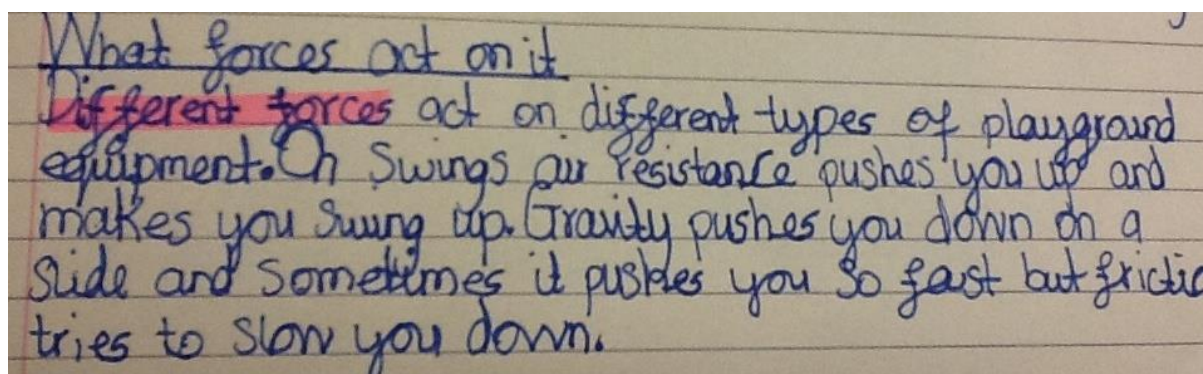 What forces act on it
Different forces act on different types of playground
equipment. On Swings air resistance pushes you up and
makes you swing up. Gravity pushes you down on a
slide and sometimes it pushes you so fast but frictio
tries to slow you down.